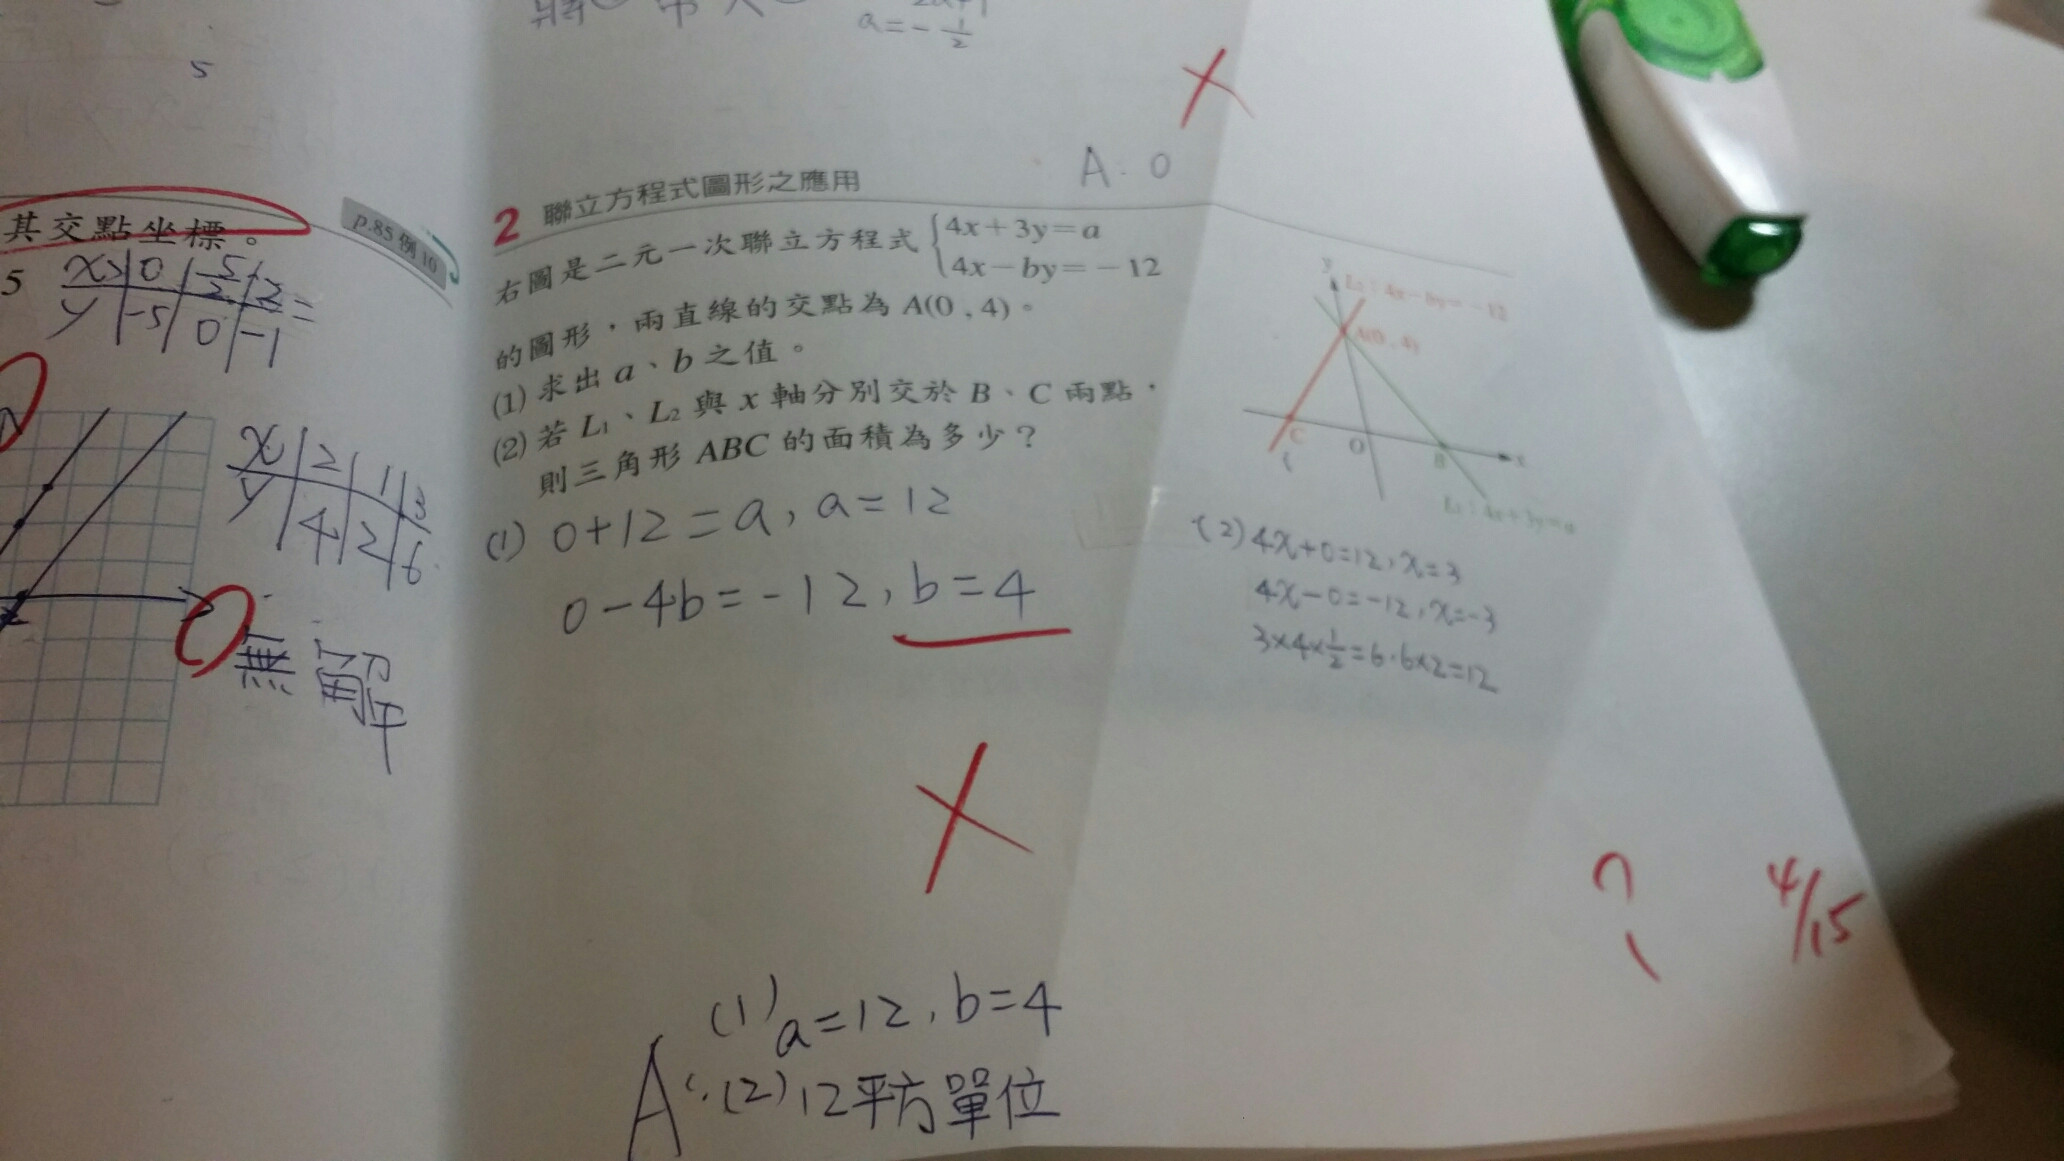 a=-1/2
A:0
5
其交點坐標。
p.85 例 10
5
x 0 5/2 2 =
y -5 0 -1
x 2 1 3
y 4 2 6
無解
2 聯立方程式圖形之應用
右圖是二元一次聯立方程式 { 4x+3y=a
4x-by=-12
的圖形,兩直線的交點為 A(0,4)。
(1) 求出 a、b 之值。
(2) 若 L₁、L₂ 與 x 軸分別交於 B、C 兩點,
則三角形 ABC 的面積為多少?
y
L₂:4x-by=-12
A(0,4)
C O B x
L₁:4x+3y=a
(1) 0+12=a, a=12
0-4b=-12, b=4
(2) 4x+0=12, x=3
4x-0=-12, x=-3
3×4×1/2=6, 6×2=12
? 4/15
(1) a=12, b=4
A:(2) 12平方單位